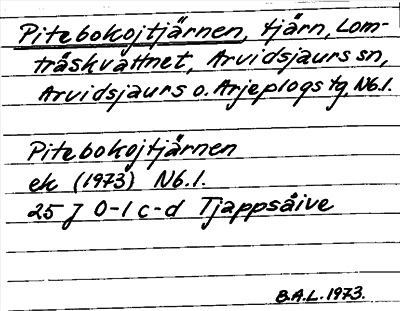 Pitebokojtjärnen, tjärn, Lom-
träskvattnet, Arvidsjaurs sn,
Arvidsjaurs o. Arjeplogs tg, Nb.l.
Pitebokojtjärnen
ek (1973) Nb.l.
25 J 0-1 c-d Tjappsåive
B.A.L. 1973.